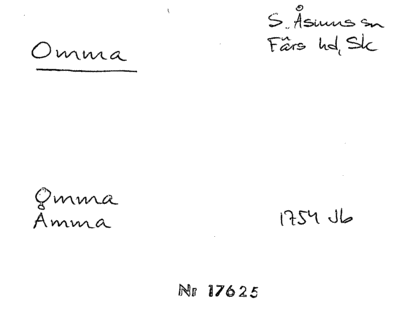 S. Åsums sn
Omma
Färs hd, Sk
Omma
Åmma 1754 Jb
Nr 17625